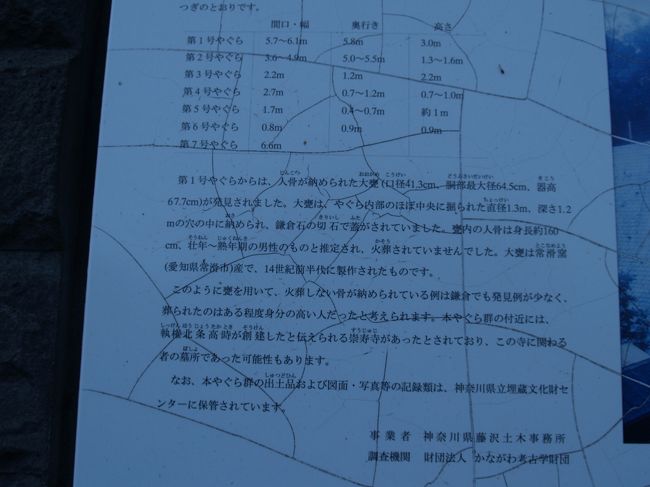 つぎのとおりです。
間口・幅 奥行き 高さ
第1号やぐら 5.7〜6.1m 5.8m 3.0m
第2号やぐら 3.6〜4.9m 5.0〜5.5m 1.3〜1.6m
第3号やぐら 2.2m 1.2m 2.2m
第4号やぐら 2.7m 0.7〜1.2m 0.7〜1.0m
第5号やぐら 1.7m 0.4〜0.7m 約1m
第6号やぐら 0.8m 0.9m 0.9m
第7号やぐら 6.6m
じんこつ おおがめ こうけい どうぶさいだいけい きこう
第1号やぐらからは、人骨が納められた大甕(口径41.3cm、胴部最大径64.5cm、器高
ちょっけい
67.7cm)が発見されました。大甕は、やぐら内部のほぼ中央に掘られた直径1.3m、深さ1.2
おさ きりいし ふた
mの穴の中に納められ、鎌倉石の切石で蓋がされていました。甕内の人骨は身長約160
そうねん じゅくねんき かそう とこなめよう
cm、壮年〜熟年期の男性のものと推定され、火葬されていませんでした。大甕は常滑窯
(愛知県常滑市)産で、14世紀前半代に製作されたものです。
このように甕を用いて、火葬しない骨が納められている例は鎌倉でも発見例が少なく、
葬られたのはある程度身分の高い人だったと考えられます。本やぐら群の付近には、
しっけん ほう じょう たか とき そうけん すうじゅじ
執権北条高時が創建したと伝えられる崇寿寺があったとされており、この寺に関わる
ぼしょ
者の墓所であった可能性もあります。
しゅつどひん
なお、本やぐら群の出土品および図面・写真等の記録類は、神奈川県立埋蔵文化財セ
ンターに保管されています。
事業者 神奈川県藤沢土木事務所
調査機関 財団法人 かながわ考古学財団